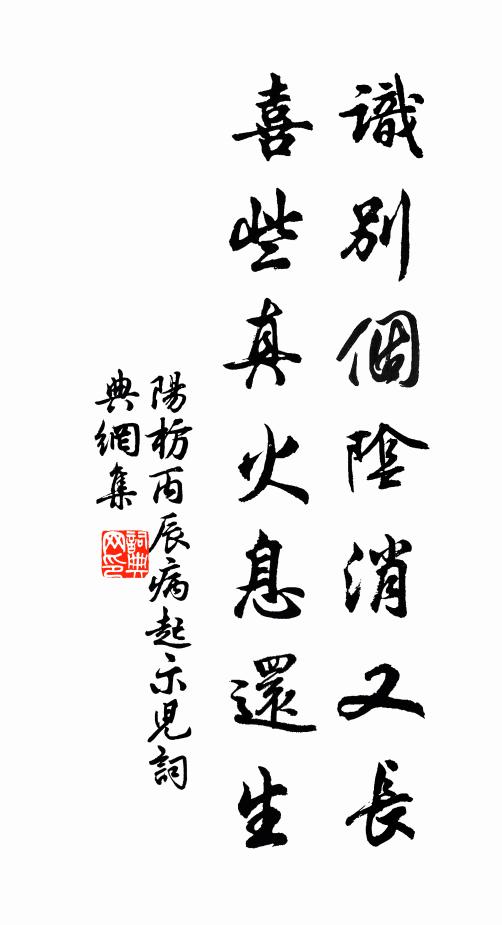 識別個陰消又長
喜些真火息還生
陽枋丙辰病起示兒詞
典網集
詞典網印